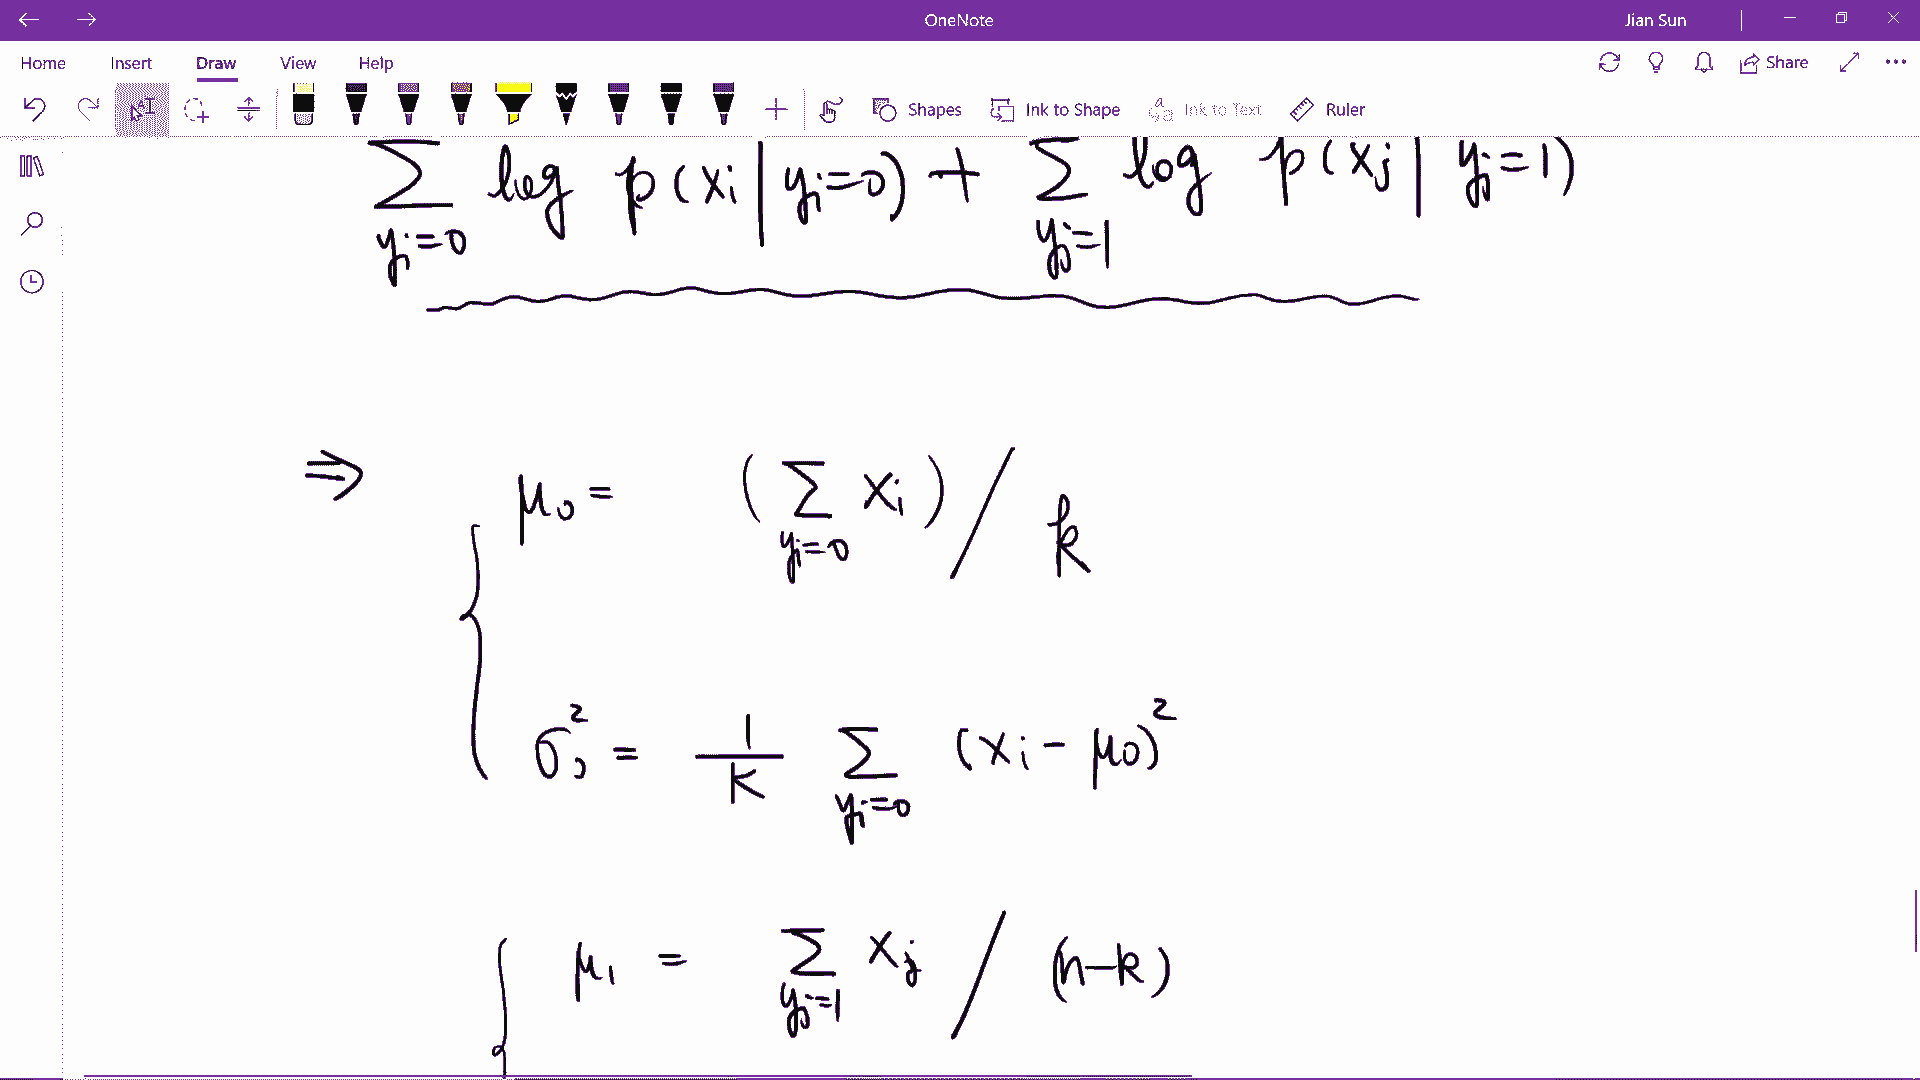 OneNote
Jian Sun
Home Insert Draw View Help
Share
Shapes Ink to Shape Ink to Text Ruler
∑_{y_i=0} log p(x_i | y_i=0) + ∑_{y_j=1} log p(x_j | y_j=1)
⇒ μ_0 = (∑_{y_i=0} x_i) / k
σ_0^2 = 1/k ∑_{y_i=0} (x_i - μ_0)^2
μ_1 = ∑_{y_j=1} x_j / (n-k)